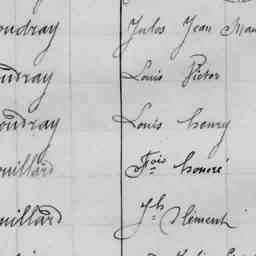 oudray Jules Jean Mau
oudray Louis Victor
oudray Louis henry
ouillard Fois honoré
ouillard Jh Clément